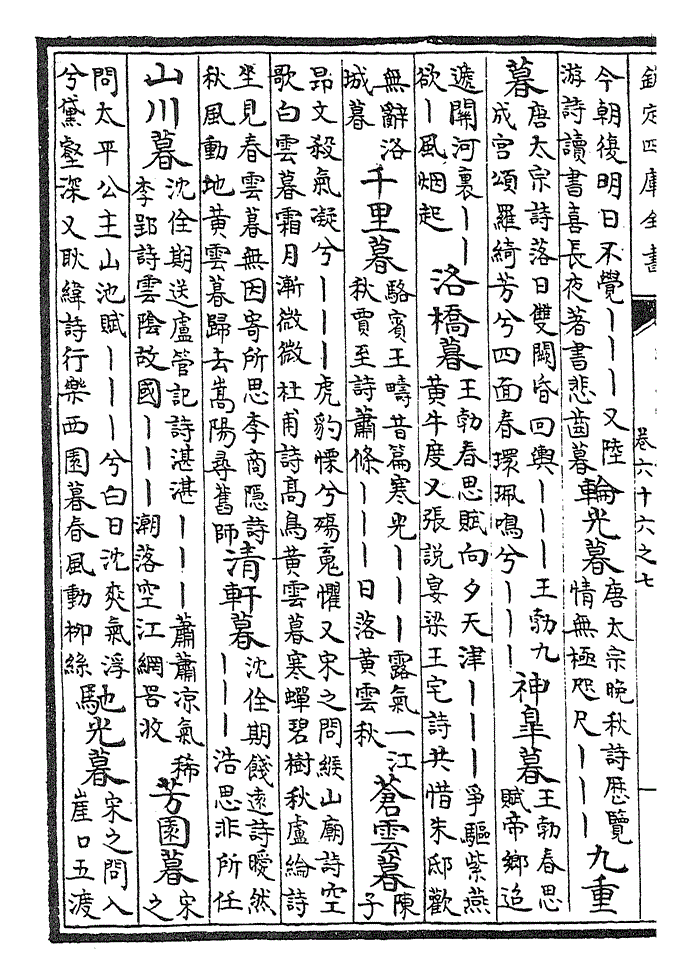 欽定四庫全書
卷六十六之七
今朝復明日不覺丨丨丨又陸
游詩讀書喜長夜著書悲齒暮
輪光暮
唐太宗晚秋詩歷覽
情無極咫尺丨丨丨
九重
暮
唐太宗詩落日雙闕昏回輿丨丨丨王勃九
成宮頌羅綺芳兮四面春環珮鳴兮丨丨丨
神皐暮
王勃春思
賦帝鄉迢
遞關河裏丨丨
欲丨風烟起
洛橋暮
王勃春思賦向夕天津丨丨丨爭驅紫燕
黃牛度又張說宴梁王宅詩共惜朱邸歡
無辭洛
城暮
千里暮
駱賓王疇昔篇寒光丨丨丨露氣一江
秋賈至詩蕭條丨丨丨日落黃雲秋
蒼雲暮
陳
子
昂文殺氣凝兮丨丨丨虎豹慄兮殤䰟懼又宋之問緱山廟詩空
歌白雲暮霜月漸微微杜甫詩高鳥黃雲暮寒蟬碧樹秋盧綸詩
坐見春雲暮無因寄所思李商隱詩
秋風動地黃雲暮歸去嵩陽尋舊師
清軒暮
沈佺期餞遠詩曖然
丨丨丨浩思非所任
山川暮
沈佺期送盧管記詩湛湛丨丨丨蕭蕭凉氣稀
李郢詩雲陰故國丨丨丨潮落空江網罟收
芳園暮
宋
之
問太平公主山池賦丨丨丨兮白日沈爽氣浮
兮黛壑深又耿緯詩行樂西園暮春風動柳絲
馳光暮
宋之問入
崖口五渡